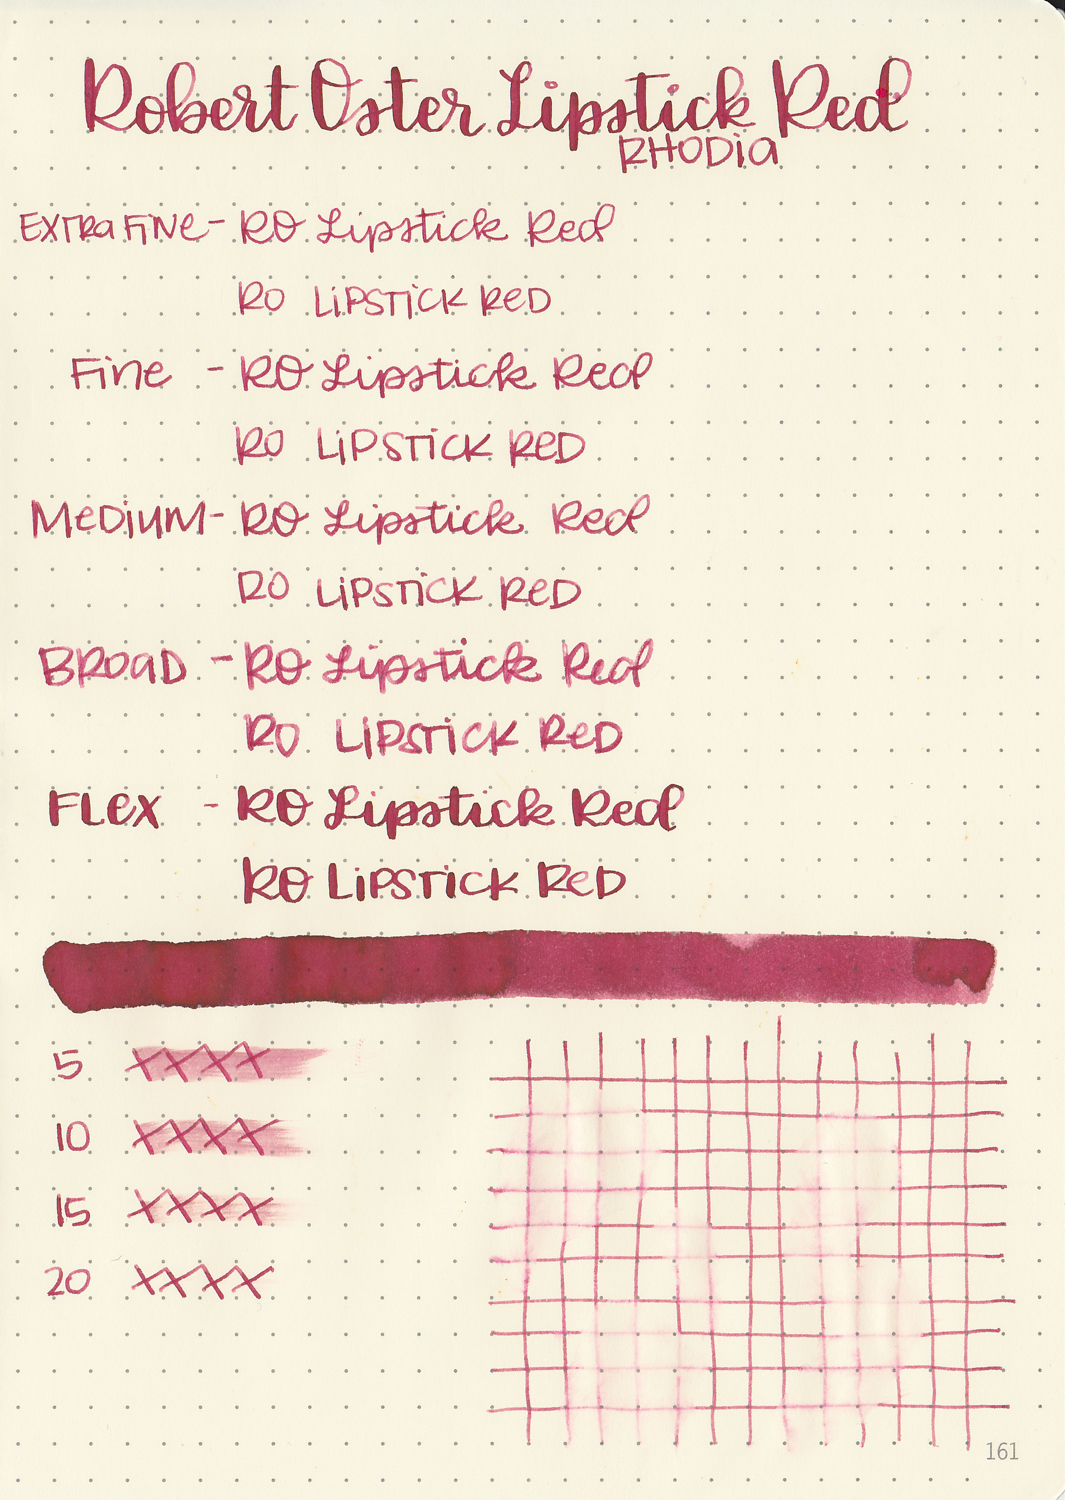 Robert Oster Lipstick Red
RHODia
EXTRa FiNe - RO Lipstick Red
RO LiPSTiCK ReD
Fine - RO Lipstick Red
RO LiPSTiCK ReD
MeDiuM - RO Lipstick Red
RO LiPSTiCK ReD
BROaD - RO Lipstick Red
RO LiPSTiCK ReD
FLex - RO Lipstick Red
RO LiPSTiCK ReD
5 XXXX
10 XXXX
15 XXXX
20 XXXX
161